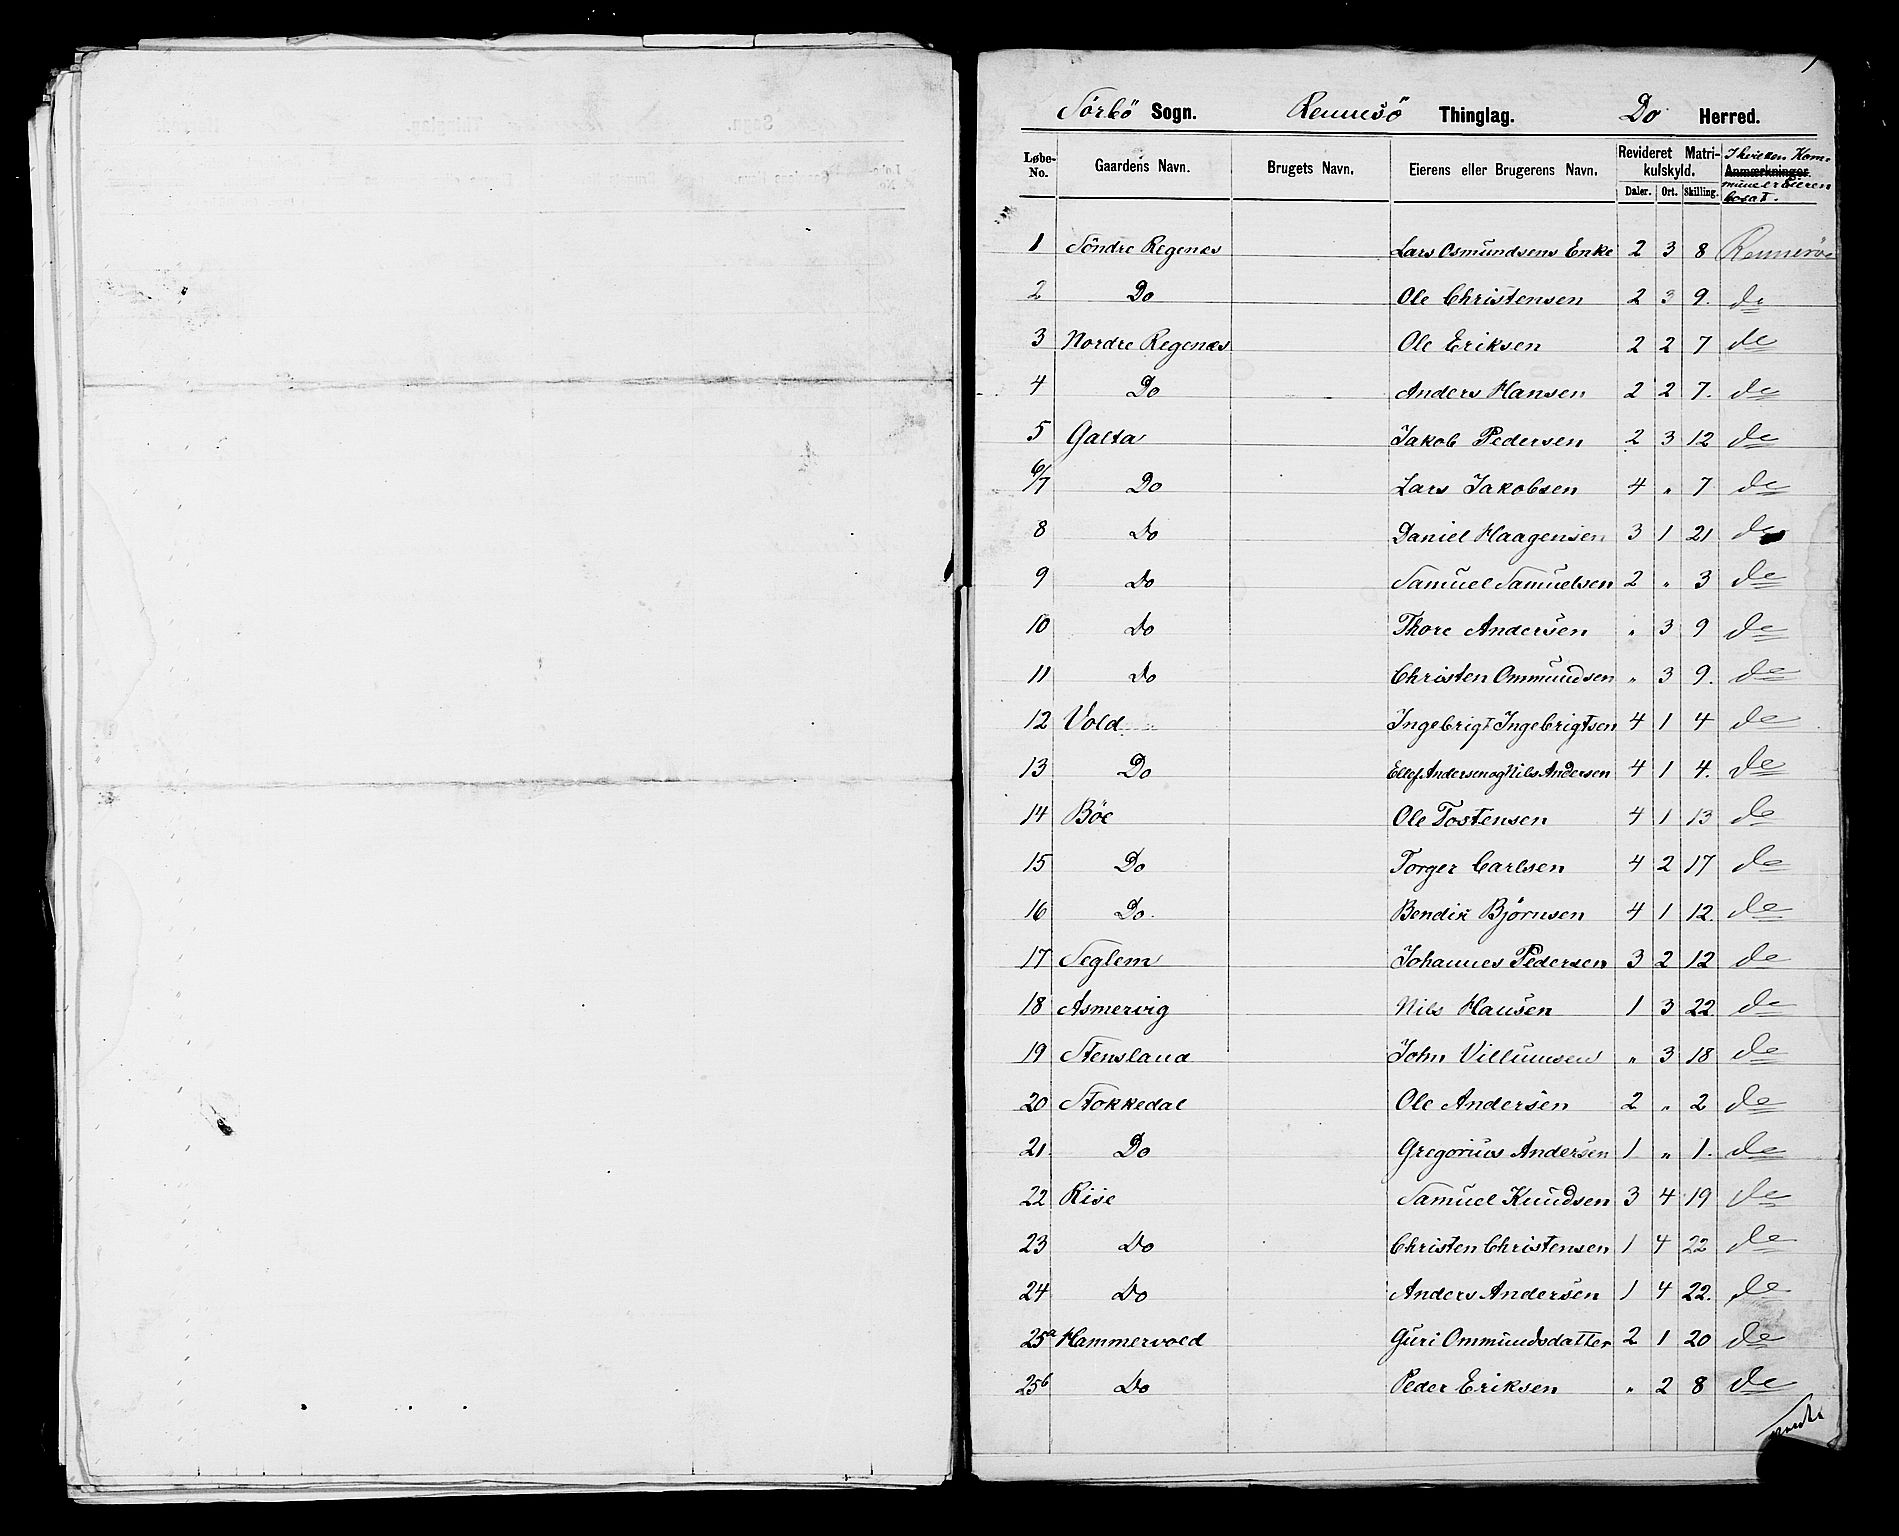 Sörbö Sogn. Rennesö Thinglag. Do Herred.
Løbe-No. Gaardens Navn. Brugets Navn. Eierens eller Brugerens Navn. Revideret Matrikulskyld. Daler. Ort. Skilling. Anmærkninger. I hvilken Kommune er Eieren bosat.
1 Söndre Regenæs Lars Osmundsens Enke 2 3 8 Rennesöe
2 Do Ole Christensen 2 3 9. do
3 Nordre Regenæs Ole Eriksen 2 2 7 do
4 Do Anders Hansen 2 2 7. do
5 Galta Jakob Pedersen 2 3 12 do
6/7 Do Lars Jakobsen 4 " 7 do
8 Do Daniel Haagensen 3 1 21 do
9 Do Samuel Samuelsen 2 " 3 do
10 Do Thore Andersen " 3 9 do
11 Do Christen Ommundsen " 3 9. do
12 Vold Ingebrigt Ingebrigtsen 4 1 4 do
13 Do Ellef Andersen og Nils Andersen 4 1 4. do
14 Böe Ole Tostensen 4 1 13 do
15 Do Torger Carlsen 4 2 17 do
16 Do. Bendik Björnsen 4 1 12. do
17 Seglem Johannes Pedersen 3 2 12 do
18 Asmervig Nils Hansen 1 3 22 do
19 Stensland John Villumsen " 3 18 do
20 Stokkedal Ole Andersen 2 " 2 do
21. Do Gregorius Andersen 1 " 1. do
22 Rise Samuel Knudsen 3 4 19 do
23 Do Christen Christensen 1 4 22 do
24 Do Anders Andersen 1 4 22. do
25a Hammervold Guri Ommundsdatter 2 1 20 do
25b Do Peder Eriksen " 2 8 do